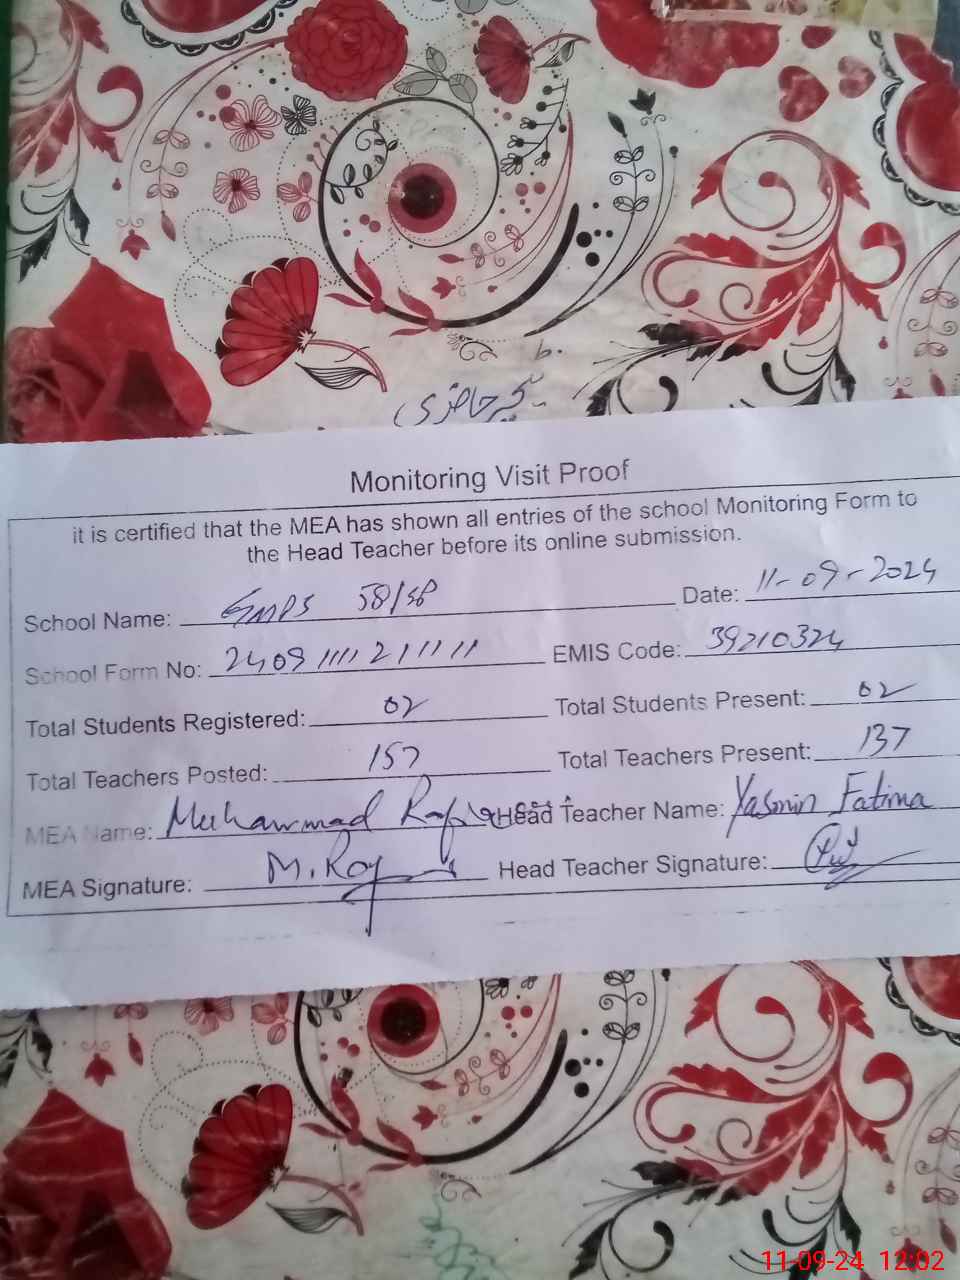 رجسٹر حاضری
Monitoring Visit Proof
it is certified that the MEA has shown all entries of the school Monitoring Form to
the Head Teacher before its online submission.
School Name: GMPS 58/SB Date: 11-09-2024
School Form No: 2409111121111 EMIS Code: 39210324
Total Students Registered: 02 Total Students Present: 02
Total Teachers Posted: 157 Total Teachers Present: 137
MEA Name: Muhammad Head Teacher Name: Yasmin Fatima
MEA Signature: Head Teacher Signature:
11-09-24 12:02